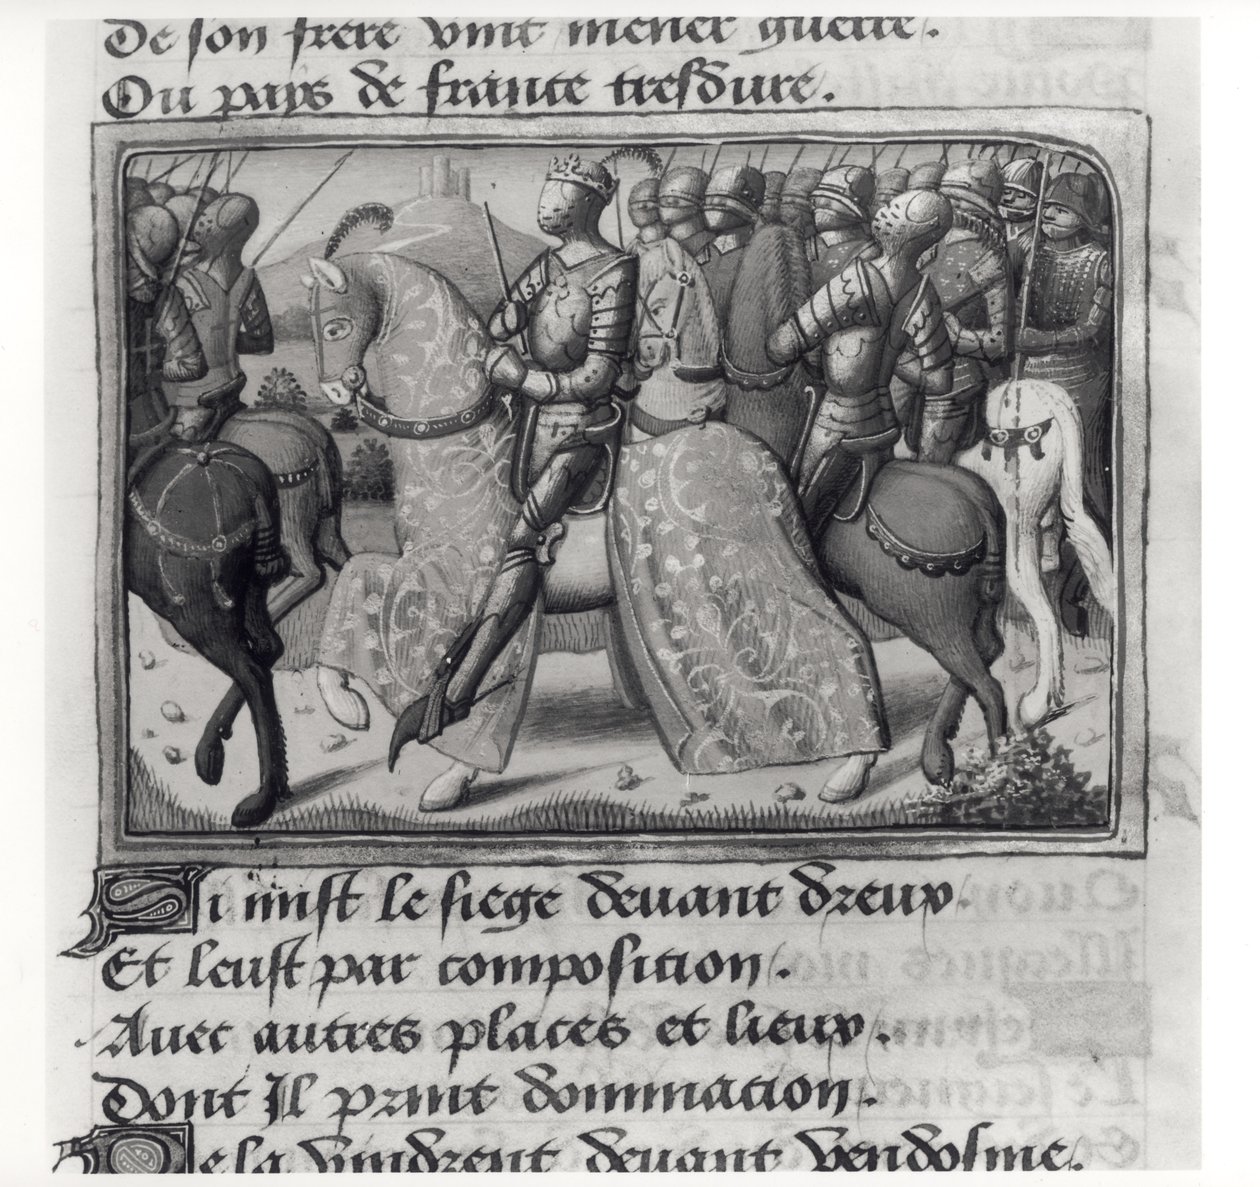 De son frere vint mener guerre.
Ou pays de france tresdure.
Si mist le siege deuant dreux.
Et leust par composition.
Auec autres places et lieux.
Dont Il print dominacion.
De la vindrent deuant vendosme.